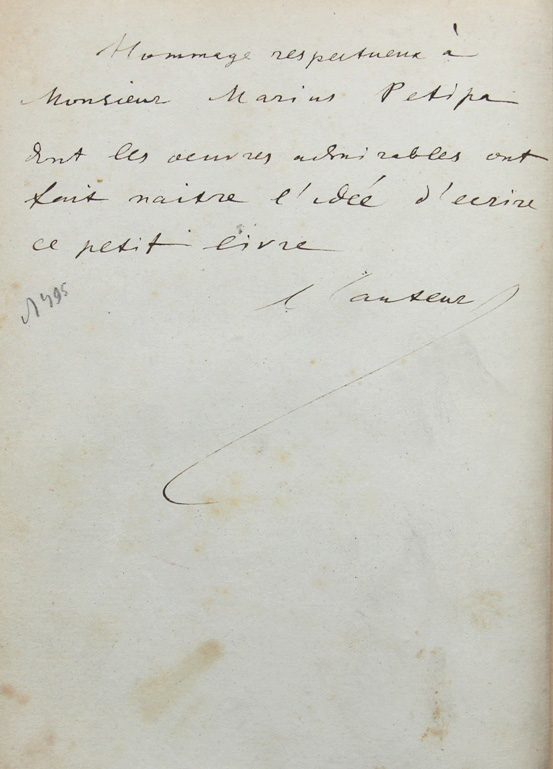 Hommage respectueux à
Monsieur Marius Petipa
dont les oeuvres admirables ont
fait naitre l'idée d'ecrire
ce petit livre
l'auteur